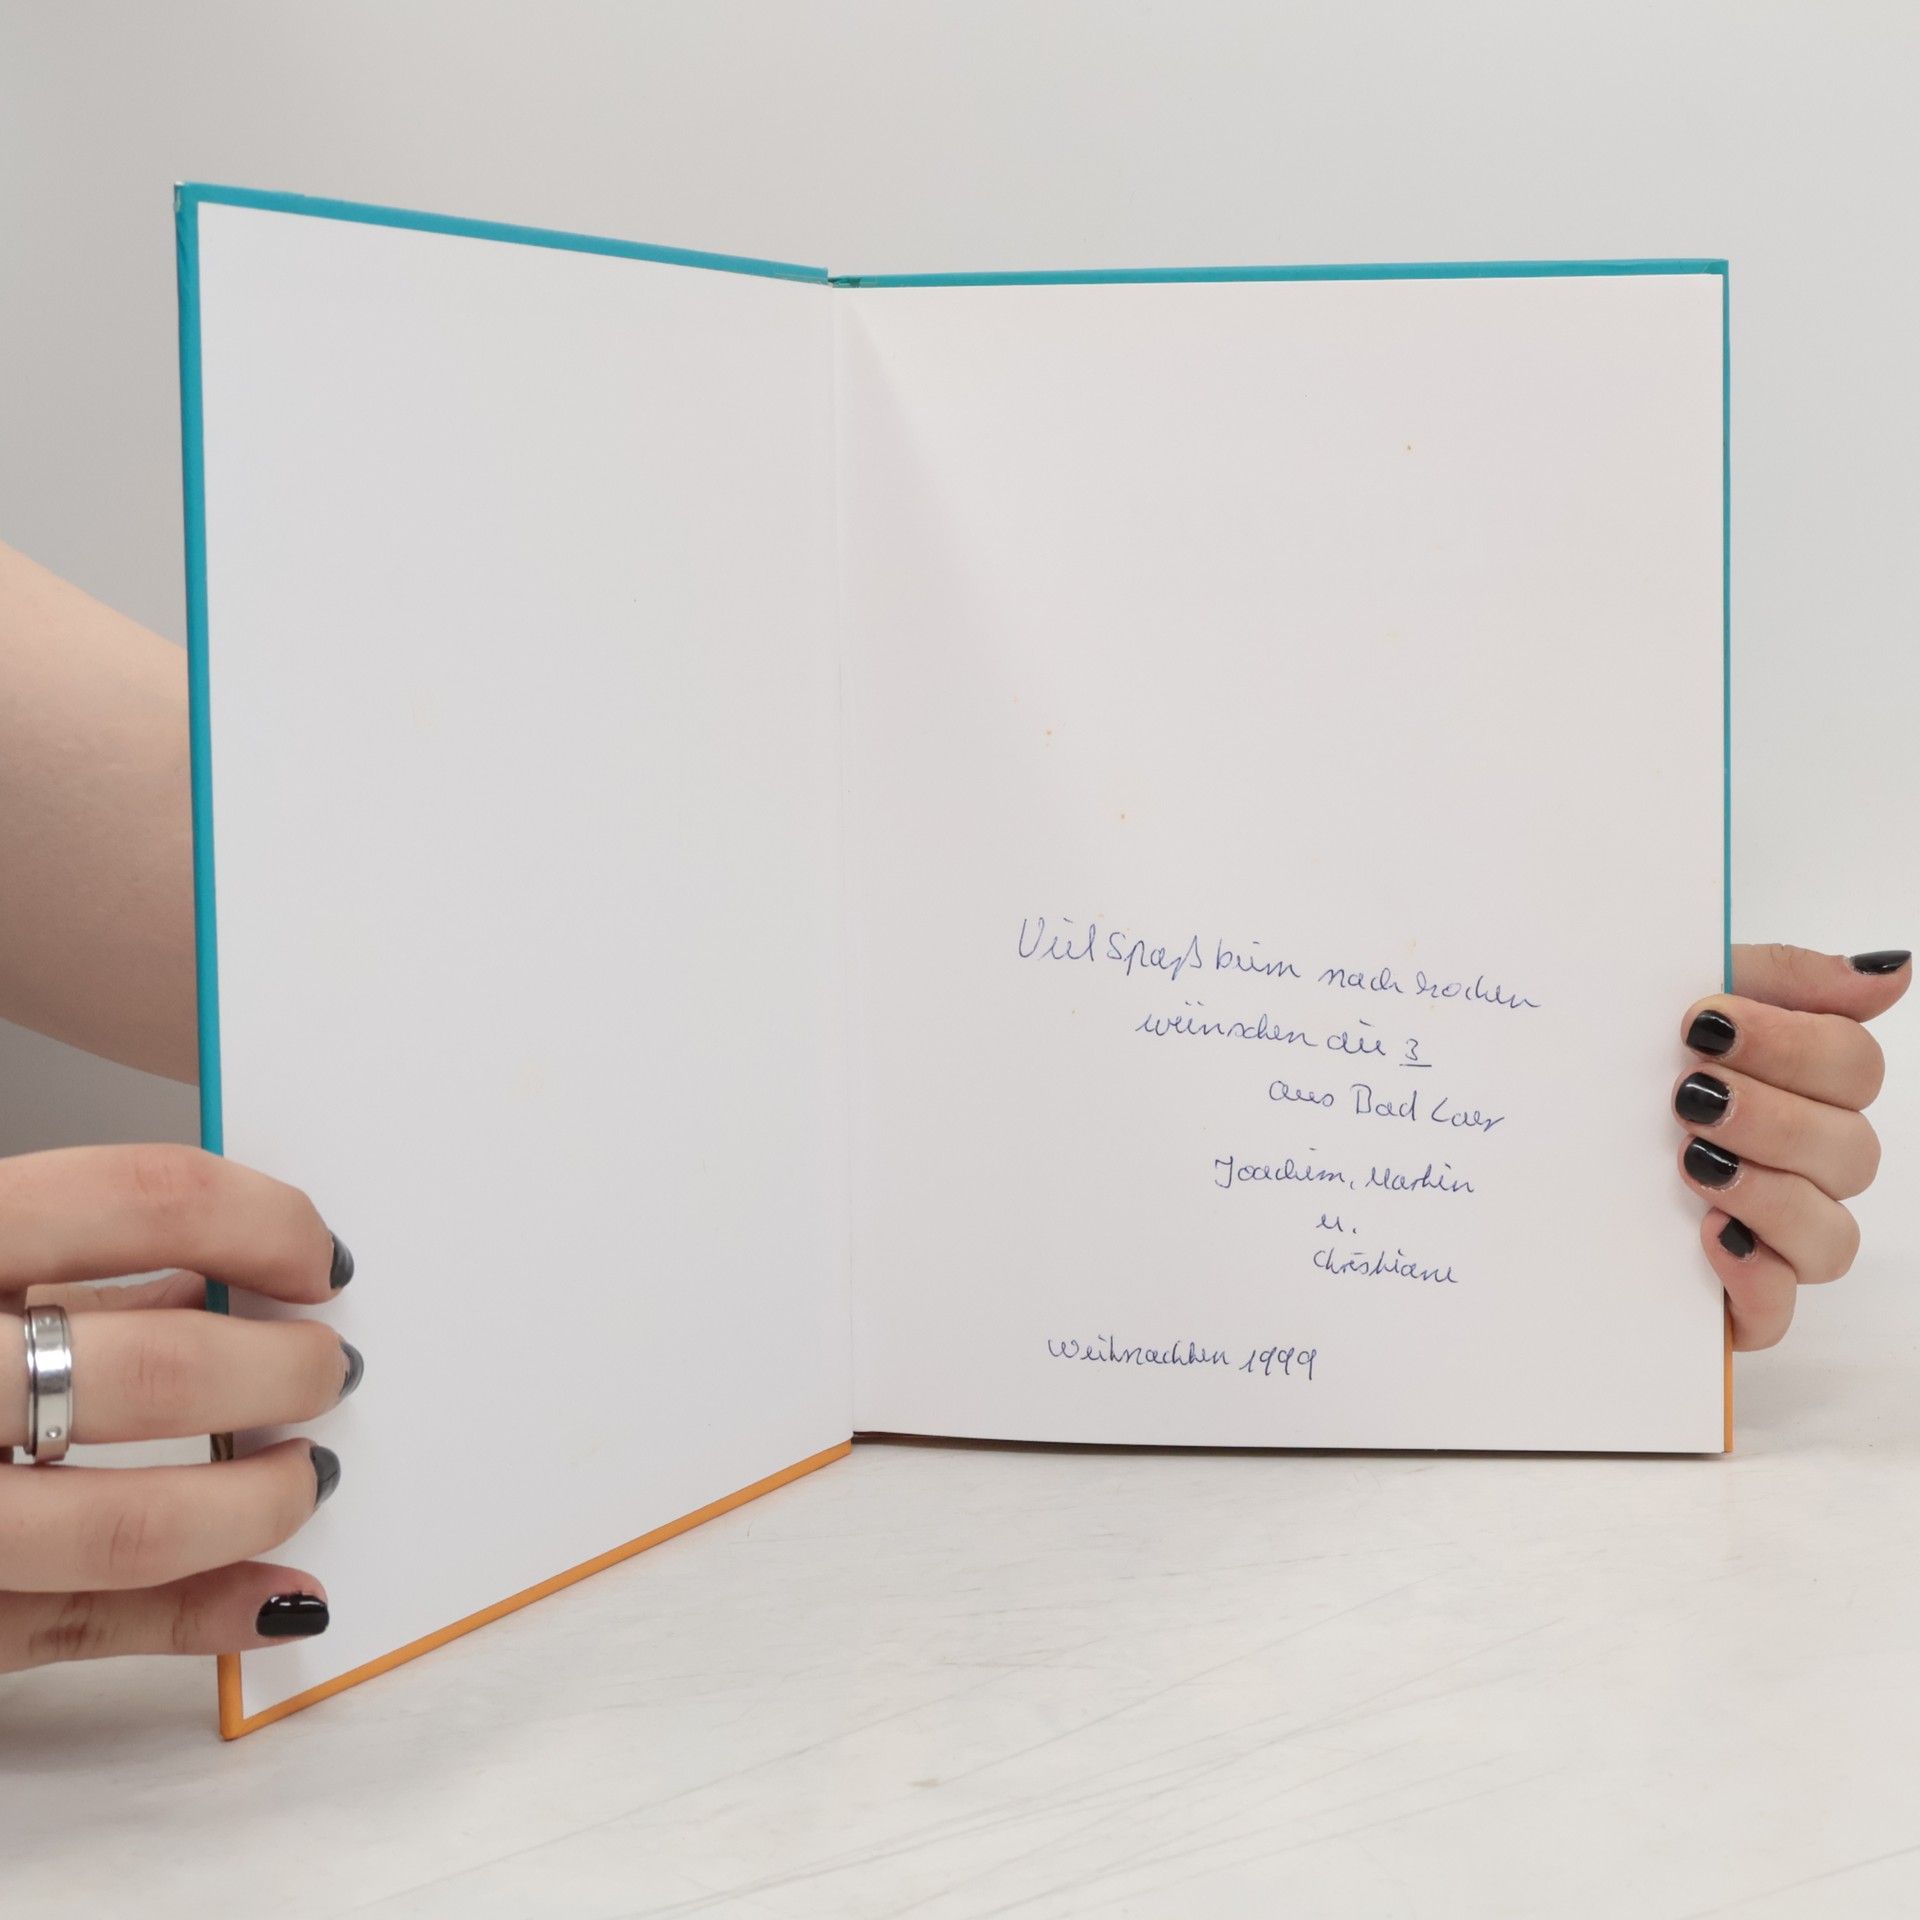 Viel Spaß beim nach kochen
wünschen die 3
aus Bad Laer
Joachim, Martin
u.
Christiane
Weihnachten 1999